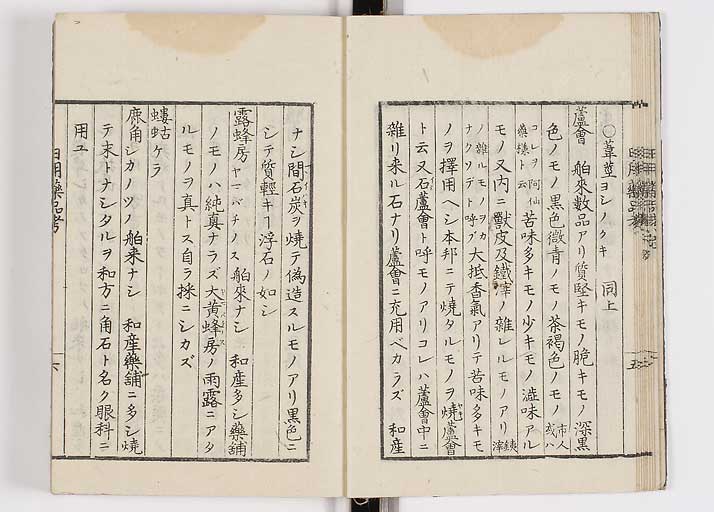 ○葦莖ヨシノクキ 同上
蘆會 舶來數品アリ質堅キモノ脆キモノ深黒
色ノモノ黒色微青ノモノ茶褐色ノモノ市人或ハ
コレヲ阿仙藥様ト云苦味多キモノ少キモノ澁味アル
モノ又内ニ獸皮及鐵滓ノ雜レルモノアリ鐵滓
ノ雜ルモノヲカナクソデト呼ブ大抵香氣アリテ苦味多キモ
ノヲ擇用ヘシ本邦ニテ燒タルモノヲ燒蘆會
ト云又石蘆會ト呼モノアリコレハ蘆會中ニ
雜リ来ル石ナリ蘆會ニ充用ベカラズ 和産
ナシ間石炭ヲ燒テ偽造スルモノアリ黒色ニ
シテ質輕キ浮石ノ如シ
露蜂房ヤマバチノス 舶來ナシ 和産多シ藥舗
ノモノハ純真ナラズ大黄蜂房ノ雨露ニアタ
ルモノヲ真トス自ラ採ニシカズ
螻蛄ケラ
鹿角シカノツノ 舶来ナシ 和産藥舗ニ多シ燒
テ末トナシタルヲ和方ニ角石ト名ク眼科ニ
用ユ
日用藥品考
六